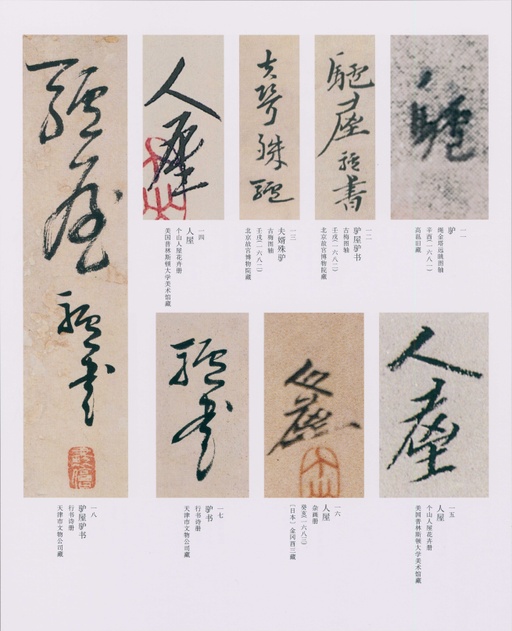 驢
一一
驴
绳金塔远眺图轴
辛酉(一六八一)
高邕旧藏
驢屋驢書
一二
驴屋驴书
古梅图轴
壬戌(一六八二)
北京故宫博物院藏
夫壻殊驢
一三
夫婿殊驴
古梅图轴
壬戌(一六八二)
北京故宫博物院藏
人屋
一四
人屋
个山人屋花卉册
美国普林斯顿大学美术馆藏
人屋
一五
人屋
个山人屋花卉册
美国普林斯顿大学美术馆藏
人屋
一六
人屋
杂画册
癸亥(一六八三)
(日本)金冈酉三藏
驢書
一七
驴书
行书诗册
天津市文物公司藏
驢屋驢書
一八
驴屋驴书
行书诗册
天津市文物公司藏